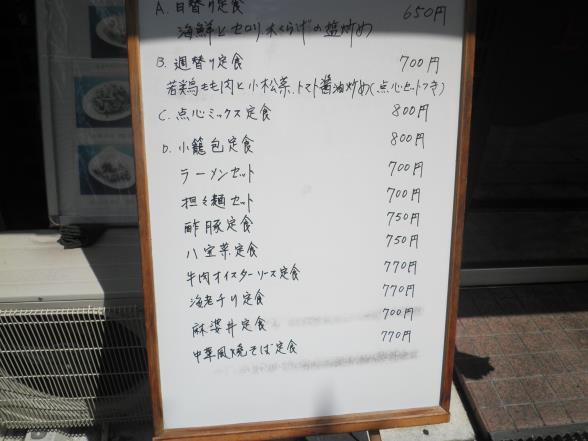 A. 日替り定食 650円
海鮮とセロリ、木くらげの塩炒め
B. 週替り定食 700円
若鶏もも肉と小松菜、トマト醤油炒め(点心セットつき)
C. 点心ミックス定食 800円
D. 小籠包定食 800円
ラーメンセット 700円
担々麺セット 700円
酢豚定食 750円
八宝菜定食 750円
牛肉オイスターソース定食 770円
海老チリ定食 770円
麻婆丼定食 700円
中華風焼そば定食 770円